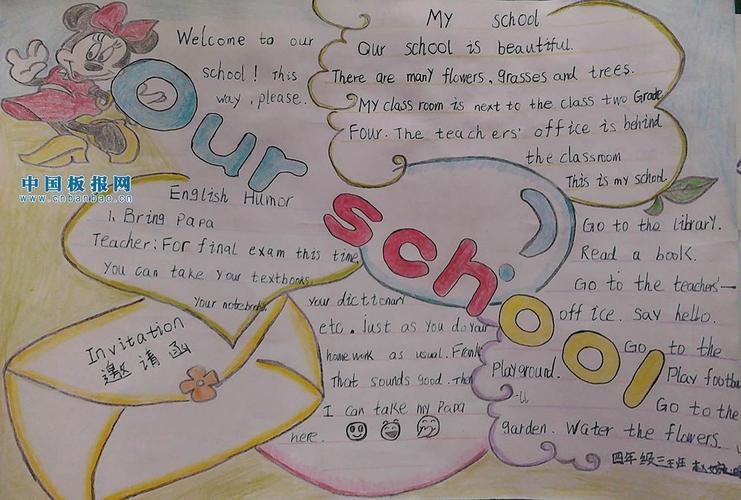 Welcome to our
school! This
way, please.
My school
Our school is beautiful.
There are many flowers, grasses and trees.
My class room is next to the class two Grade
Four. The teachers' office is behind
the classroom
This is my school.
Our school
中国板报网
www.cnbanbao.cn
English Humor
1. Bring Papa
Teacher: For final exam this time,
you can take your textbooks,
your notebooks,
your dictionary
etc. Just as you do your
homework as usual.
That sounds good. Then
I can take my Papa
here.
Invitation
邀请函
Go to the library.
Read a book.
Go to the teachers'
office. Say hello.
Go to the
Playground.
Play footba
Go to the
garden. Water the flowers.
四年级三班